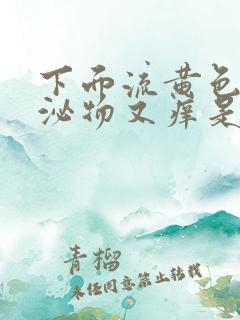 下面流黄色
泌物又痒是
青榴
未经同意禁止转载